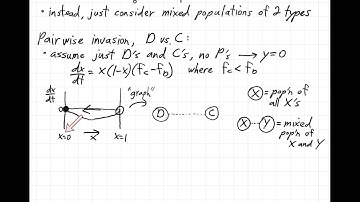 • instead, just consider mixed populations of 2 types
Pairwise invasion, D vs. C:
• assume just D's and C's, no P's → y=0
dx/dt = x(1-x)(f_c-f_b) where f_c < f_b
dx/dt
0
x=0
→ x
x=1
"graph"
D
C
X = pop'n of all X's
X Y = mixed pop'n of X and Y